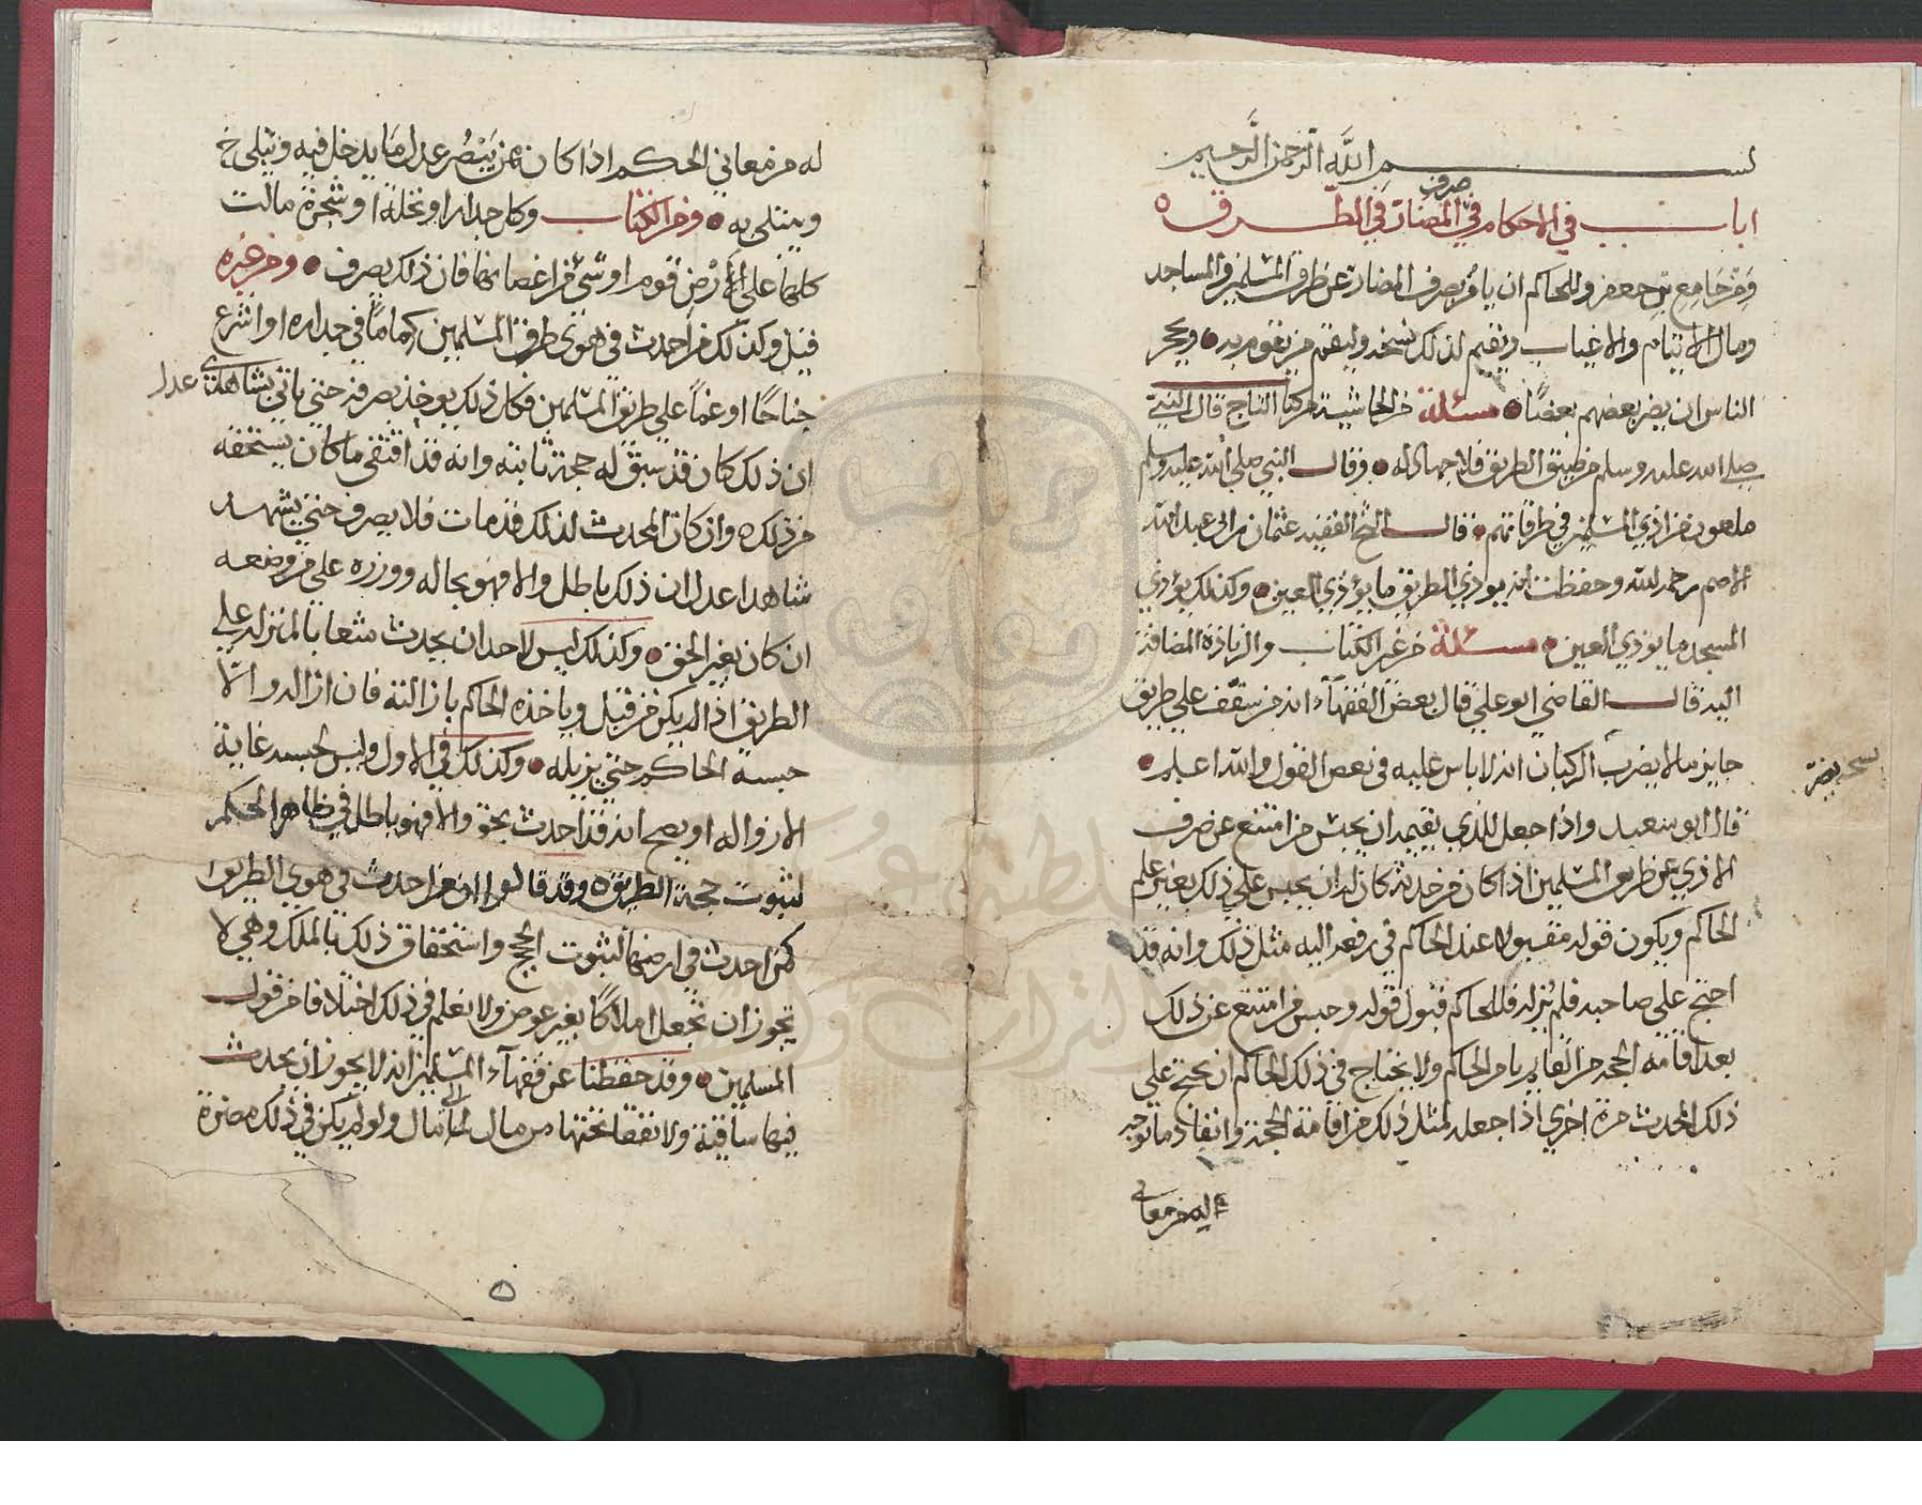 بسم الله الرحمن الرحيم
باب في الاحكام في صرف المضار في الطرق
ومن جامع بن جعفر وللحاكم ان يأمر بصرف المضار عن طرق المسلمين والمساجد
ومال الايتام والاغياب ويقيم لذلك نسخه وليقم من يقوم به ويحجر
الناس ان يضر بعضهم بعضا مسئلة من الحاشية من كتاب التاج قال النبي
صلى الله عليه وسلم من ضيق الطريق فلا جهاد له وقال النبي صلى الله عليه وسلم
ملعون من اذي المسلمين في طرقاتهم قال الشيخ الفقيه عثمان بن ابي عبد الله
الاصم رحمه الله وحفظت انه يوذي الطريق ما يؤذي العين وكذلك يؤذي
المسجد ما يوذي العين مسئلة من غير الكتاب والزيادة المضافة
اليه قال القاضي ابو علي قال بعض الفقهاء انه من سقف علي طريق
جايز ما لا يضر بالركبان انه لا باس عليه في بعض القول والله اعلم
قال ابو سعيد واذا جعل للذي يقيمه ان يحبس من امتنع عن صرف
الاذي عن طريق المسلمين اذا كان من حدثه كان له ان يحبس علي ذلك بغير علم
الحاكم ويكون قوله مقبولا عند الحاكم في رفعه اليه مثل ذلك وانه قد
احتج علي صاحبه فلم يزله فللحاكم قبول قوله وحبس من امتنع عن ذلك
بعد اقامه الحجه من القايم بامر الحاكم ولا يحتاج في ذلك الحاكم ان يحتج علي
ذلك المحدث مرة اخري اذا جعله لمثل ذلك من اقامة الحجة وانفاذ ما توجه
اليه من معاني
له من معاني الحكم اذا كان ممن يبصر عدل ما يدخل فيه ويبلي خ
ويبتلي به ومن الكتاب وكل جدار او نخلة او شجرة مالت
كلها على ارض قوم او شي من اغصانها فان ذلك يصرف ومن غيره
قيل وكذلك من احدث في هوي طرق المسلمين كماما في جداره او اشرع
جناحا او غما علي طريق المسلمين فكل ذلك يوخذ بصرفه حتي ياتي بشاهدي عدل
ان ذلك كان قد سبق له حجة ثابته وانه قد اقتفي ما كان يستحقه
من ذلك وان كان المحدث لذلك قد مات فلا يصرف حتي يشهد
شاهدا عدل ان ذلك باطل والا فهو بحاله ووزره علي من وضعه
ان كان بغير الحق وكذلك ليس لاحد ان يحدث مثعابا لمنزله علي
الطريق اذا لم يكن من قبل وياخذه الحاكم بازالته فان ازاله والا
حبسه الحاكم حتي يزيله وكذلك في الاول وليس لحبسه غاية
الا زواله او يصح انه قد احدث بحق والا فهو باطل في ظاهر الحكم
لثبوت حجة الطريق وقد قالوا ان من احدث في هوي الطريق
كمن احدث في ارضها لثبوت الحجج واستحقاق ذلك بالملك وهي لا
يجوز ان تجعل املاكا بغير عوض ولا نعلم في ذلك اختلافا من قول
المسلمين وقد حفظنا عن فقهاء المسلمين انه لا يجوز ان يحدث
فيها ساقية ولا نفقا تحتها من مال الي مال ولو لم يكن في ذلك مضرة